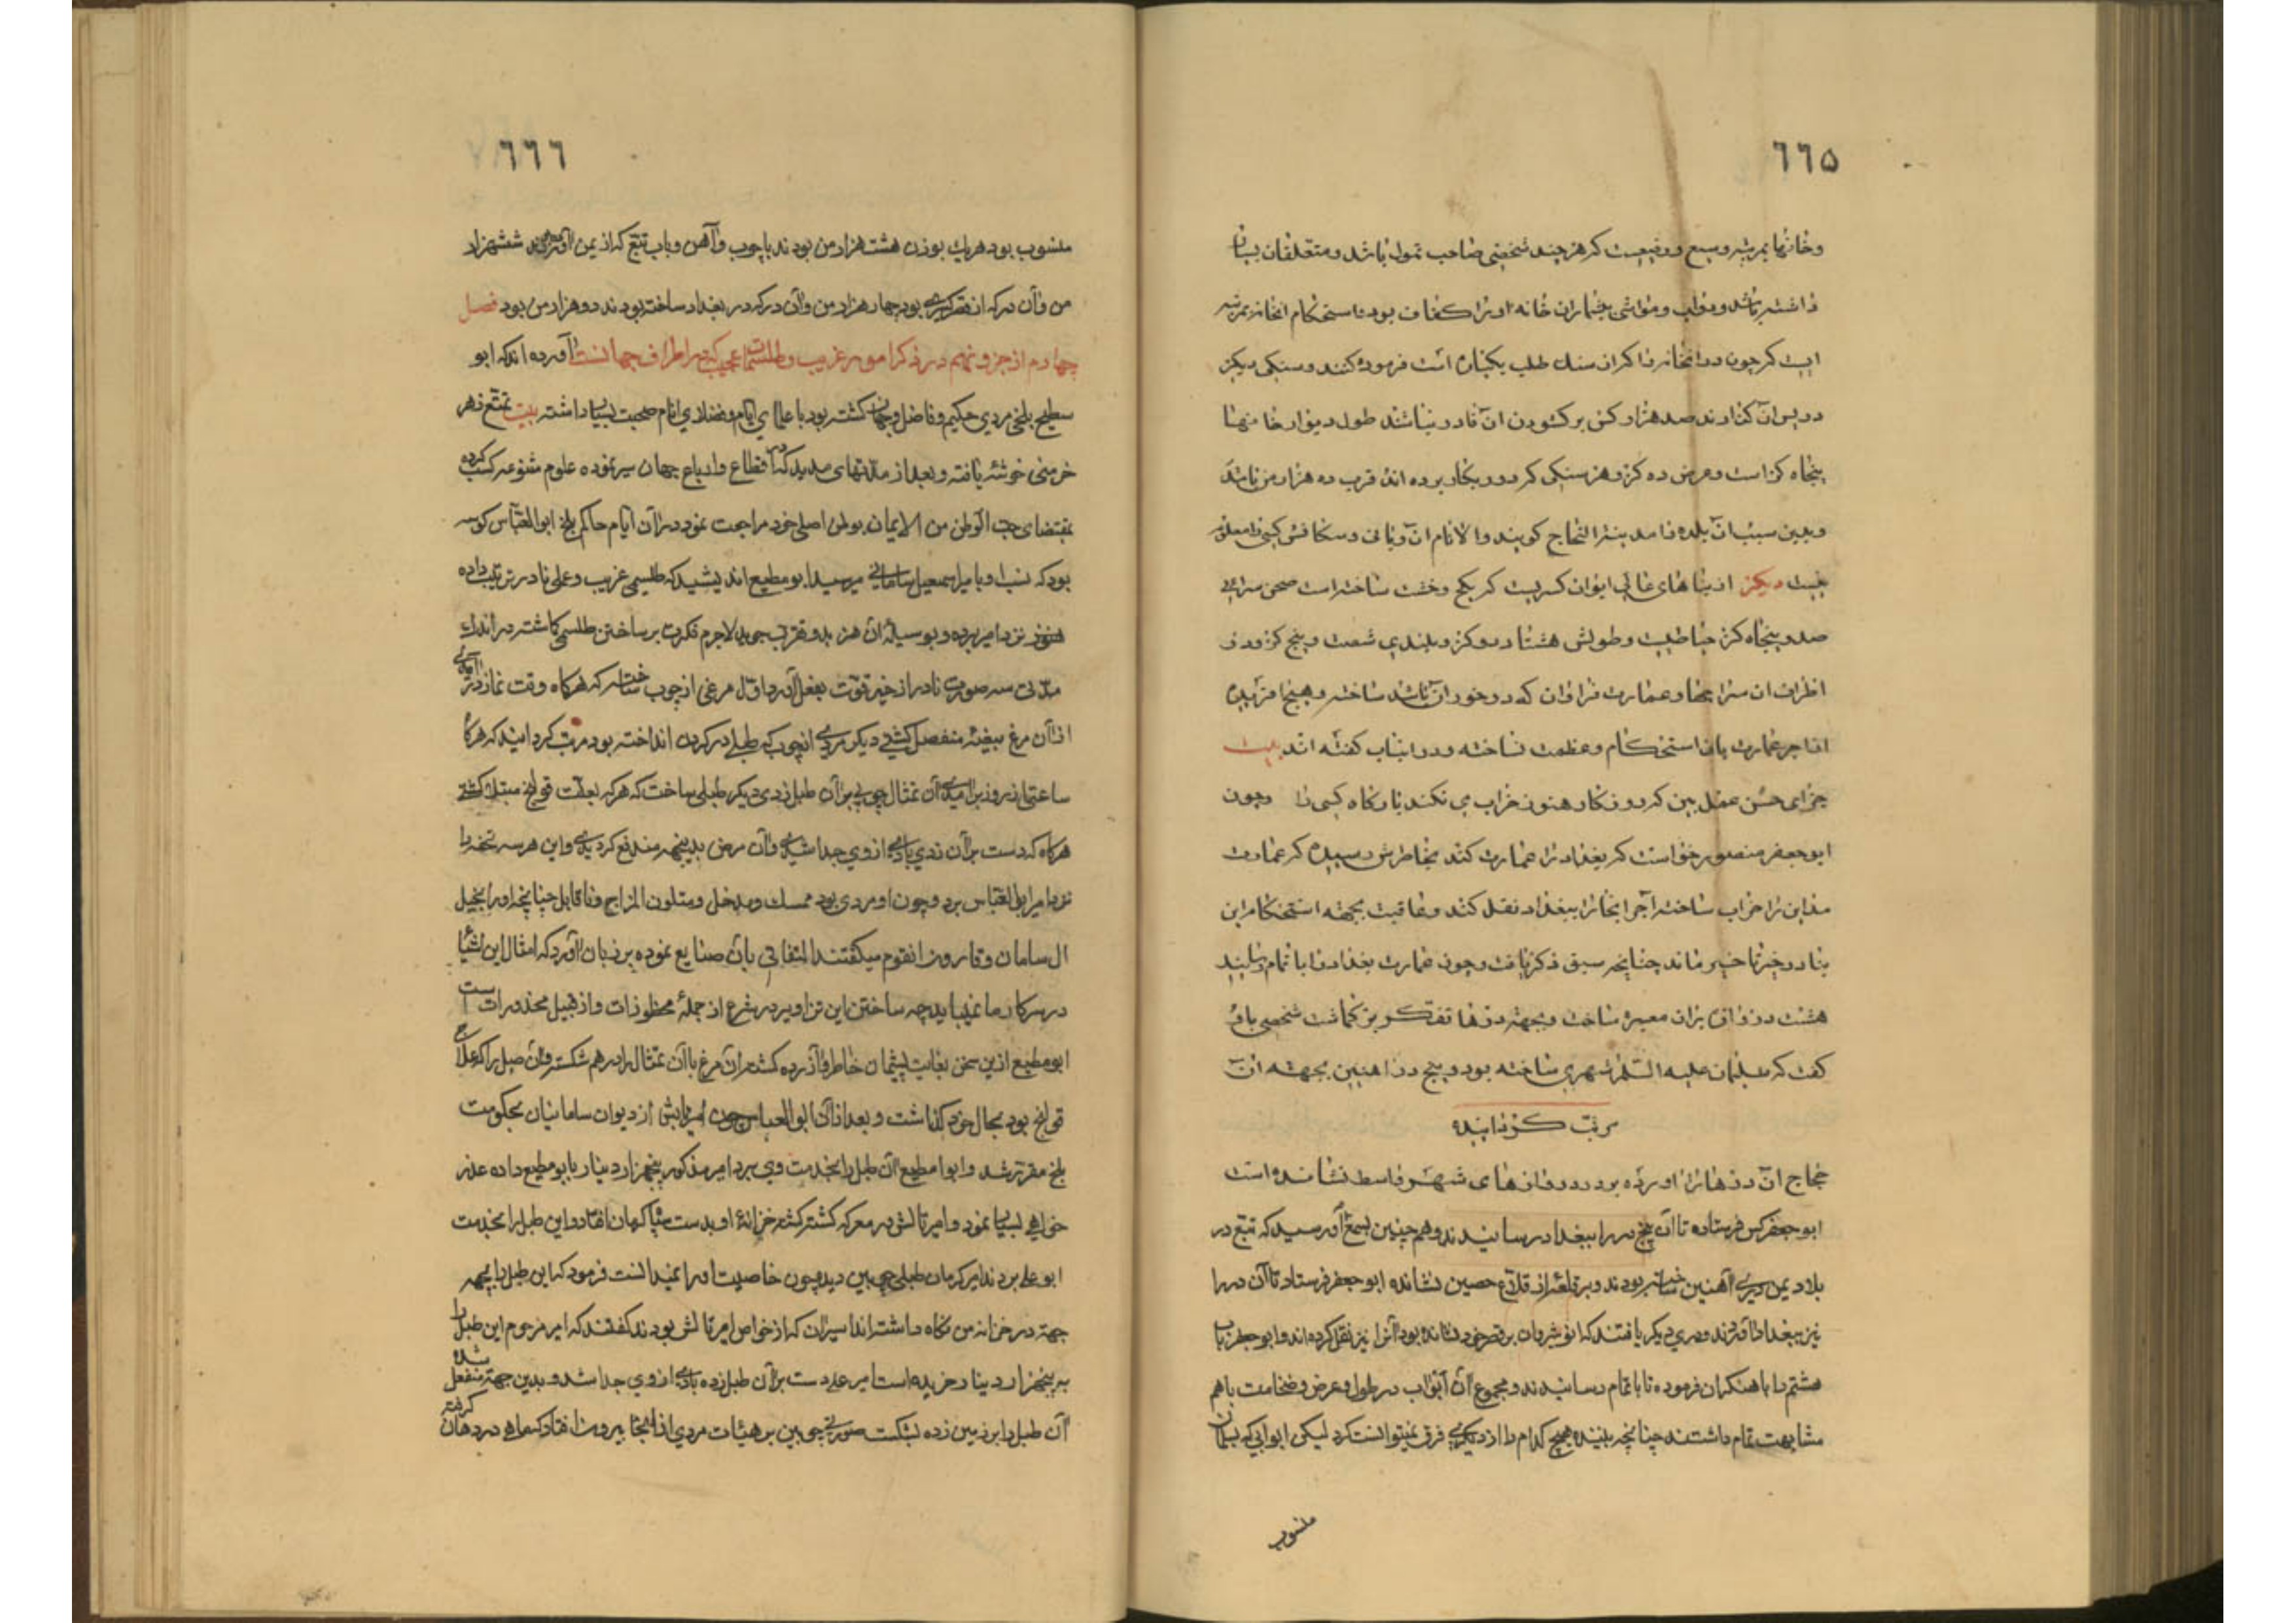 ٦٦٥
وخانها بمرتبه وسیع ورفیعست که هرچند شخصی صاحب تمول باشد ومتعلقان بسیار
داشته باشد ودواب ومواشی بیشمار آن خانه اورا کفاف بود واستحکام انخانه بمرتبه
ایست که چون در انخانه را که از سنک طلب یکپاره است فرموده کنند وسنکی دیکر
در پس آن کذارند صد هزار کس بر کشودن آن قادر نباشند طول دیوار خانها
پنجاه کز است وعرض ده کز وهر سنکی که درو بکار برده اند قریب ده هزار من باشد
وبدین سبب آن بلده را مدینة النحاج کویند والانام آن وبانی وسکانش کسی را معلوم
نیست دیکر از بناهای عالی ایوان کسریست که بکچ وخشت ساخته است صحن سرای
صد وپنجاه کز خیاطیست وطولش هشتاد دو کز وبلندی شصت وپنج کز ودر
اطراف آن سراچها وعمارت فراوان که در خور آن باشد ساخته وهیچ آفریده
از اجر عمارت باین استحکام وعظمت نساخته ودر اینباب کفته اند بیت
جزای حسن عمل بین که روزکار هنوز خراب می نکند بارکاه کسری را وچون
ابوجعفر منصور خواست که بغداد را عمارت کند بخاطرش رسید که عمارت
مداین را خراب ساخته آجر انجا را ببغداد نقل کند وعاقبت بجهته استحکام این
بنا در حیز تاخیر ماند چنانچه سبق ذکر یافت وچون عمارت بغداد را باتمام رسانید
هشت دروازه بران معمره ساخت وبجهته درها تفکر بر کماشت شخصی باو
کفت که سلیمان علیه السلام شهری ساخته بود وپنج در آهنین بجهته آن
مرتب کردانیده
حجاج آن درها را آورده بود در دروازهای شهر واسط نشانده است
ابو جعفر کس فرستاده تا آن پنج در را ببغداد رسانیدند وهم چنین بسمع او رسید که تبع در
بلاد یمن دری آهنین ساخته بودند وبر قلعه از قلاع حصین نشانده ابو جعفر فرستاد تا آن در را
نیز ببغداد آوردند ودری دیکر یافتند که انوشیروان بر قصر خود نشانده بود آنرا نیز نقل کرده اند وابو جعفر باب
هشتم را باهنکران فرموده تا باتمام رسانیدند ومجموع آن ابواب در طول وعرض وضخامت باهم
مشابهت تمام داشتند چنانچه بیننده هیچ کدام را از دیکری فرق نمیتوانست کرد لیکن ابوابی که بسلیمان
منسوب
٦٦٦
منسوب بود هریک بوزن هشت هزار من بودند باچوب وآهن وباب تبع که از یمن آورده بودند ششهزار
من وآن در که از قصر کسری بود چهار هزار من وآن در که در بغداد ساخته بودند دو هزار من بود فصل
چهارم از جزو نهم در ذکر امور غریب وطلسمات عجیب که در اطراف جهانست آورده اند که ابو
مطیع بلخی مردی حکیم وفاضل وجهان کشته بود با علمای ایام وفضلای انام صحبت بسیار داشته بیت تمتع زهر
خرمنی خوشۀ یافته وبعد از مدتهای مدید که در اقطاع وارباع جهان سیر نموده علوم متنوعه کسب کرده
بمقتضای حب الوطن من الایمان بوطن اصلی خود مراجعت نمود در آن ایام حاکم بلخ ابو العباس کوسه
بود که نسب او بامیر اسمعیل سامانی میرسید ابو مطیع اندیشید که طلسمی غریب وعملی نادر ترتیب داده
نزد امیر برده وبوسیلۀ آن هنر بدو تقرب جوید لاجرم فکرت بر ساختن طلسمی کماشته در اندک
مدتی سه صورت نادر از حیز قوت بفعل آورد اول مرغی از چوب ساخته که هرکاه وقت نماز در آمدی
از آن مرغ بیضۀ منفصل کشتی دیکر مردی از چوب که طبلی در کردن انداخته بود مرتب کردانید که هرکاه
ساعتی از روز برآمدی آن تمثال چوبی بر آن طبل زدی دیکر طبلی ساخت که هر که بعلت قولنج مبتلا کشتی
هرکاه که دست بر آن زدی بادی از وی جدا شدی وآن مرض بدینجهه مندفع کردیدی واین هر سه تحفه را
نزد امیر ابو العباس برد وچون او مردی بود ممسک ومدخل ومتلون المزاج وناقابل چنانچه اورا بخیل
ال سامان وقارون انقوم میکفتند التفاتی بآن صنایع نموده بر زبان آورد که امثال این اشیا
در سرکار ما نمیباید چه ساختن این تزاویر در شرع از جملۀ محظورات واز قبیل محذورات است
ابو مطیع ازین سخن بغایت پشیمان خاطر وآزرده کشته آن مرغ با آن تمثال را در هم شکست وآن طبل را که علاج
قولنج بود بحال خود کذاشت وبعد از آن ابو العباس چون امیر تالش از دیوان سامانیان بحکومت
بلخ مقرر شد وابوا مطیع آن طبل را بخدمت وی برد امیر مذکور پنجهزار دینار بابو مطیع داده عذر
خواهی بسیار نمود وامیر تالش در معرکه کشته کشته خزانۀ او بدست ماکان افتاد واین طبل را بخدمت
ابو علی بردند امیر کرمان طبلی چوبین دید وچون خاصیت اورا نمیدانست فرمود که این طبل را بچه
جهته در خزانه من نکاه داشته اند اسیران که از خواص امیر تالش بودند کفتند که امیر مرحوم این طبل را
به پنجهزار دینار خریده است امیر علی دست بر آن طبل زده بادی از وی جدا شد وبدین جهته منفعل شده
آن طبل را بر زمین زده بشکست صورتی چوبین بر هیئات مردی از آنجا بیرون افتاد که ماهی در دهان کرفته